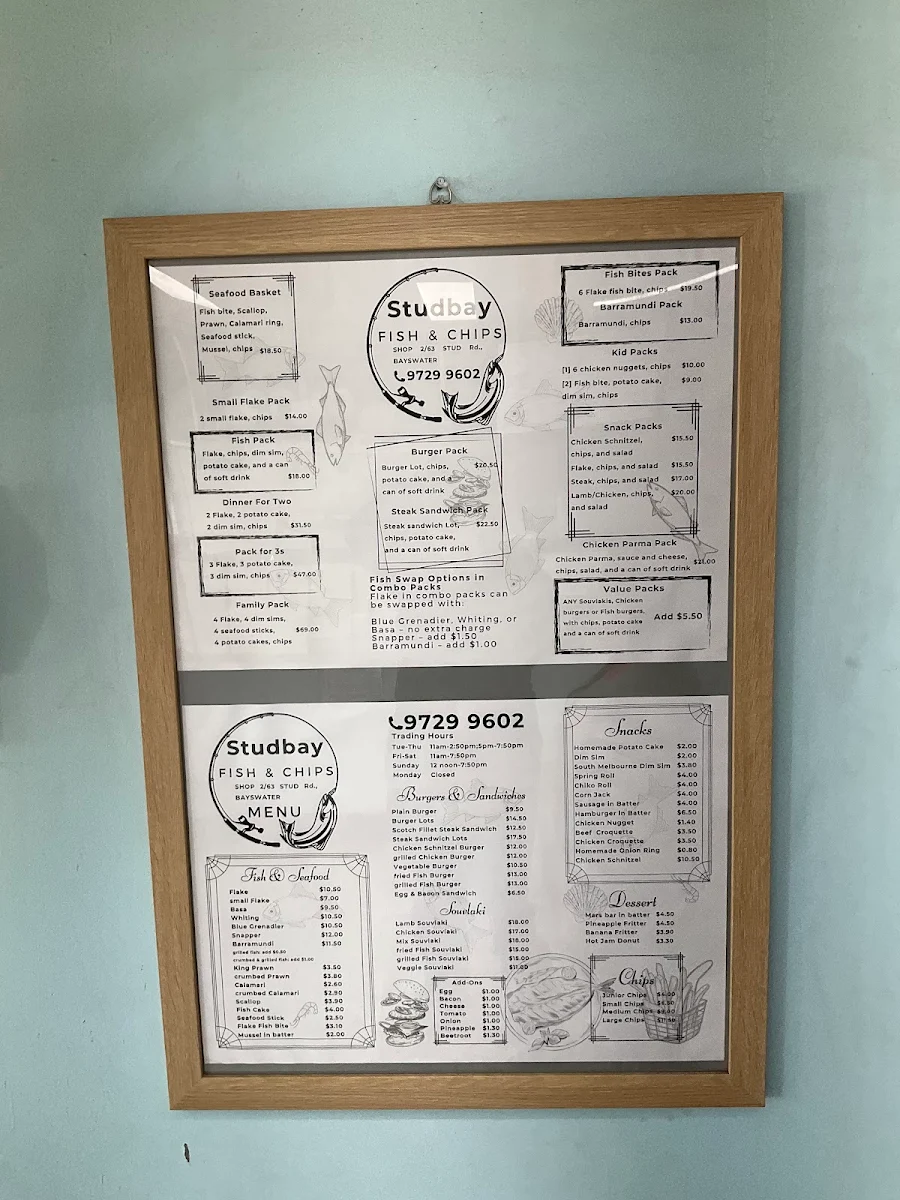 Seafood Basket
Fish bite, Scallop,
Prawn, Calamari ring,
Seafood stick,
Mussel, chips $18.50
Small Flake Pack
2 small flake, chips $14.00
Fish Pack
Flake, chips, dim sim,
potato cake, and a can
of soft drink $18.00
Dinner For Two
2 Flake, 2 potato cake,
2 dim sim, chips $31.50
Pack for 3s
3 Flake, 3 potato cake,
3 dim sim, chips $47.00
Family Pack
4 Flake, 4 dim sims,
4 seafood sticks, $69.00
4 potato cakes, chips
Studbay
FISH & CHIPS
SHOP 2/63 STUD Rd.,
BAYSWATER
9729 9602
Burger Pack
Burger Lot, chips, $20.50
potato cake, and a
can of soft drink
Steak Sandwich Pack
Steak sandwich Lot, $22.50
chips, potato cake,
and a can of soft drink
Fish Swap Options in
Combo Packs
Flake in combo packs can
be swapped with:
Blue Grenadier, Whiting, or
Basa – no extra charge
Snapper – add $1.50
Barramundi – add $1.00
Fish Bites Pack
6 Flake fish bite, chips $19.50
Barramundi Pack
Barramundi, chips $13.00
Kid Packs
[1] 6 chicken nuggets, chips $10.00
[2] Fish bite, potato cake, $9.00
dim sim, chips
Snack Packs
Chicken Schnitzel, $15.50
chips, and salad
Flake, chips, and salad $15.50
Steak, chips, and salad $17.00
Lamb/Chicken, chips, $20.00
and salad
Chicken Parma Pack
Chicken Parma, sauce and cheese,
chips, salad, and a can of soft drink $21.00
Value Packs
ANY Souvlakis, Chicken
burgers or Fish burgers,
with chips, potato cake
and a can of soft drink
Add $5.50
Studbay
FISH & CHIPS
SHOP 2/63 STUD Rd.,
BAYSWATER
MENU
Fish & Seafood
Flake $10.50
small Flake $7.00
Basa $9.50
Whiting $10.50
Blue Grenadier $10.50
Snapper $12.00
Barramundi $11.50
grilled fish: add $0.50
crumbed & grilled fish: add $1.00
King Prawn $3.50
crumbed Prawn $3.80
Calamari $2.60
crumbed Calamari $2.90
Scallop $3.90
Fish Cake $4.00
Seafood Stick $2.50
Flake Fish Bite $3.10
Mussel in batter $2.00
9729 9602
Trading Hours
Tue-Thu 11am-2:50pm;5pm-7:50pm
Fri-Sat 11am-7:50pm
Sunday 12 noon-7:50pm
Monday Closed
Burgers & Sandwiches
Plain Burger $9.50
Burger Lots $14.50
Scotch Fillet Steak Sandwich $12.50
Steak Sandwich Lots $17.50
Chicken Schnitzel Burger $12.00
grilled Chicken Burger $12.00
Vegetable Burger $10.50
fried Fish Burger $13.00
grilled Fish Burger $13.00
Egg & Bacon Sandwich $6.50
Souvlaki
Lamb Souvlaki $18.00
Chicken Souvlaki $17.00
Mix Souvlaki $18.00
fried Fish Souvlaki $15.00
grilled Fish Souvlaki $15.00
Veggie Souvlaki $11.00
Add-Ons
Egg $1.00
Bacon $1.00
Cheese $1.00
Tomato $1.00
Onion $1.00
Pineapple $1.30
Beetroot $1.30
Snacks
Homemade Potato Cake $2.00
Dim Sim $2.00
South Melbourne Dim Sim $3.80
Spring Roll $4.00
Chiko Roll $4.00
Corn Jack $4.00
Sausage in Batter $4.00
Hamburger in Batter $6.50
Chicken Nugget $1.40
Beef Croquette $3.50
Chicken Croquette $3.50
Homemade Onion Ring $0.80
Chicken Schnitzel $10.50
Dessert
Mars bar in batter $4.50
Pineapple Fritter $4.50
Banana Fritter $3.90
Hot Jam Donut $3.30
Chips
Junior Chips
Small Chips
Medium Chips
Large Chips